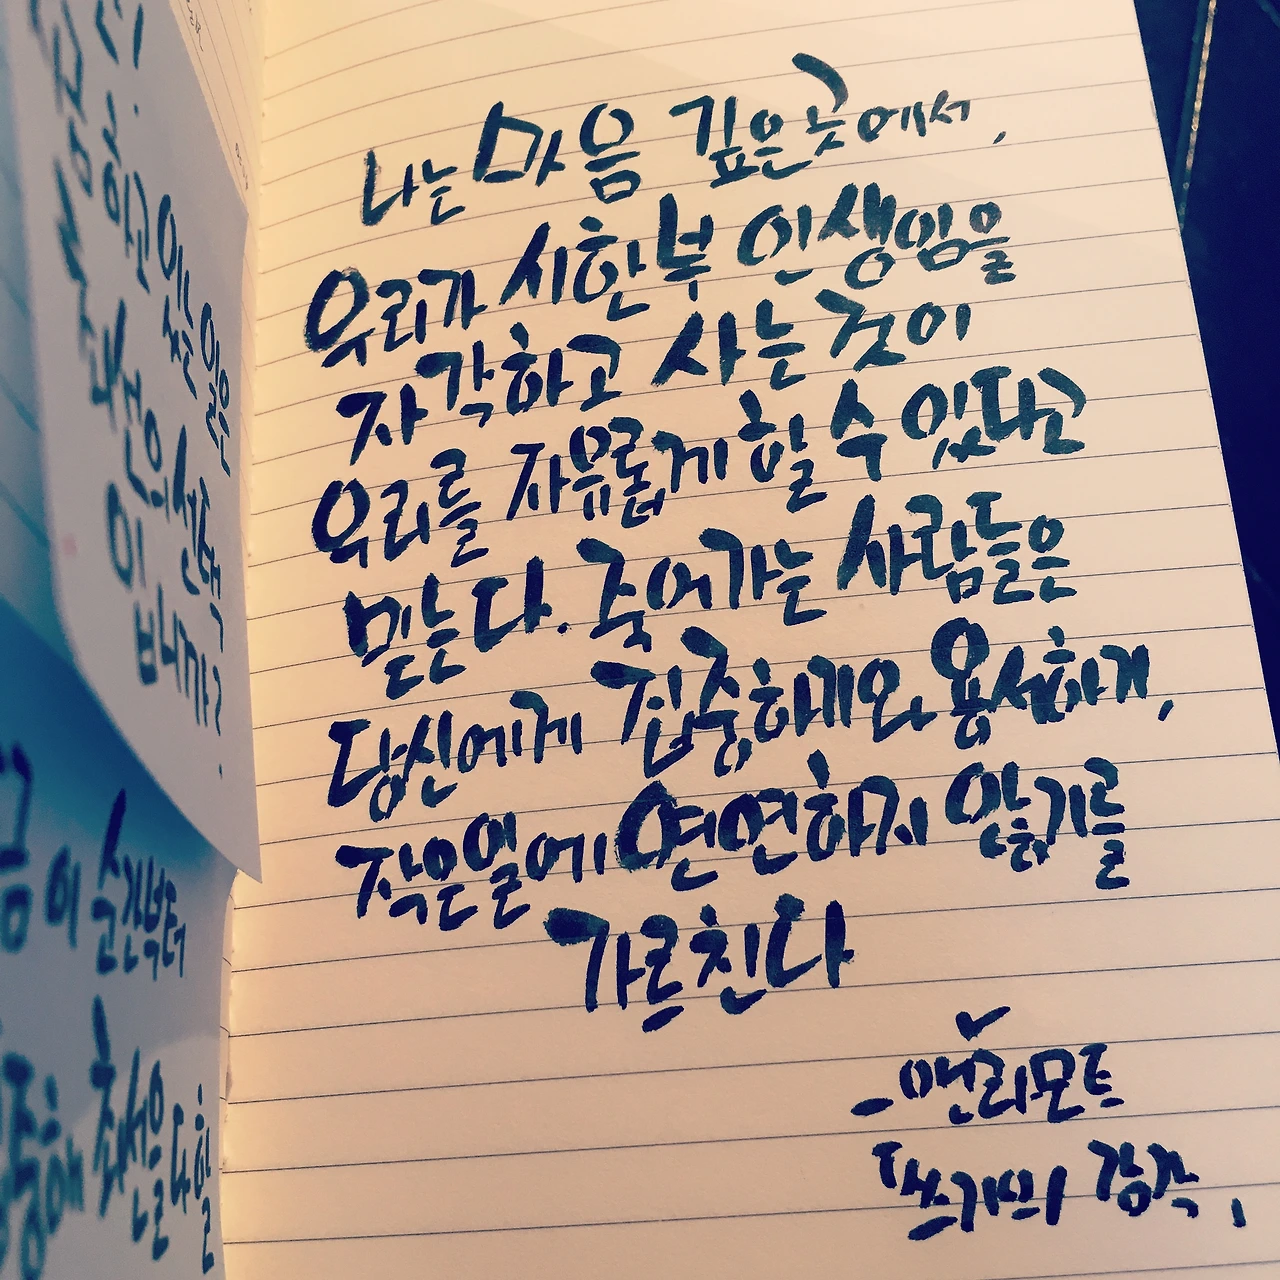 나는 마음 깊은 곳에서,
우리가 시한부 인생임을
자각하고 사는 것이
우리를 자유롭게 할 수 있다고
믿는다. 죽어가는 사람들은
당신에게 집중하게와 용서하게,
작은일에 연연하지 않기를
가르친다
- 앤 라모트
쓰기의 감각,
하고 있는 일은
최선의 선택
입니까?
이 순간부터
최선을 다할